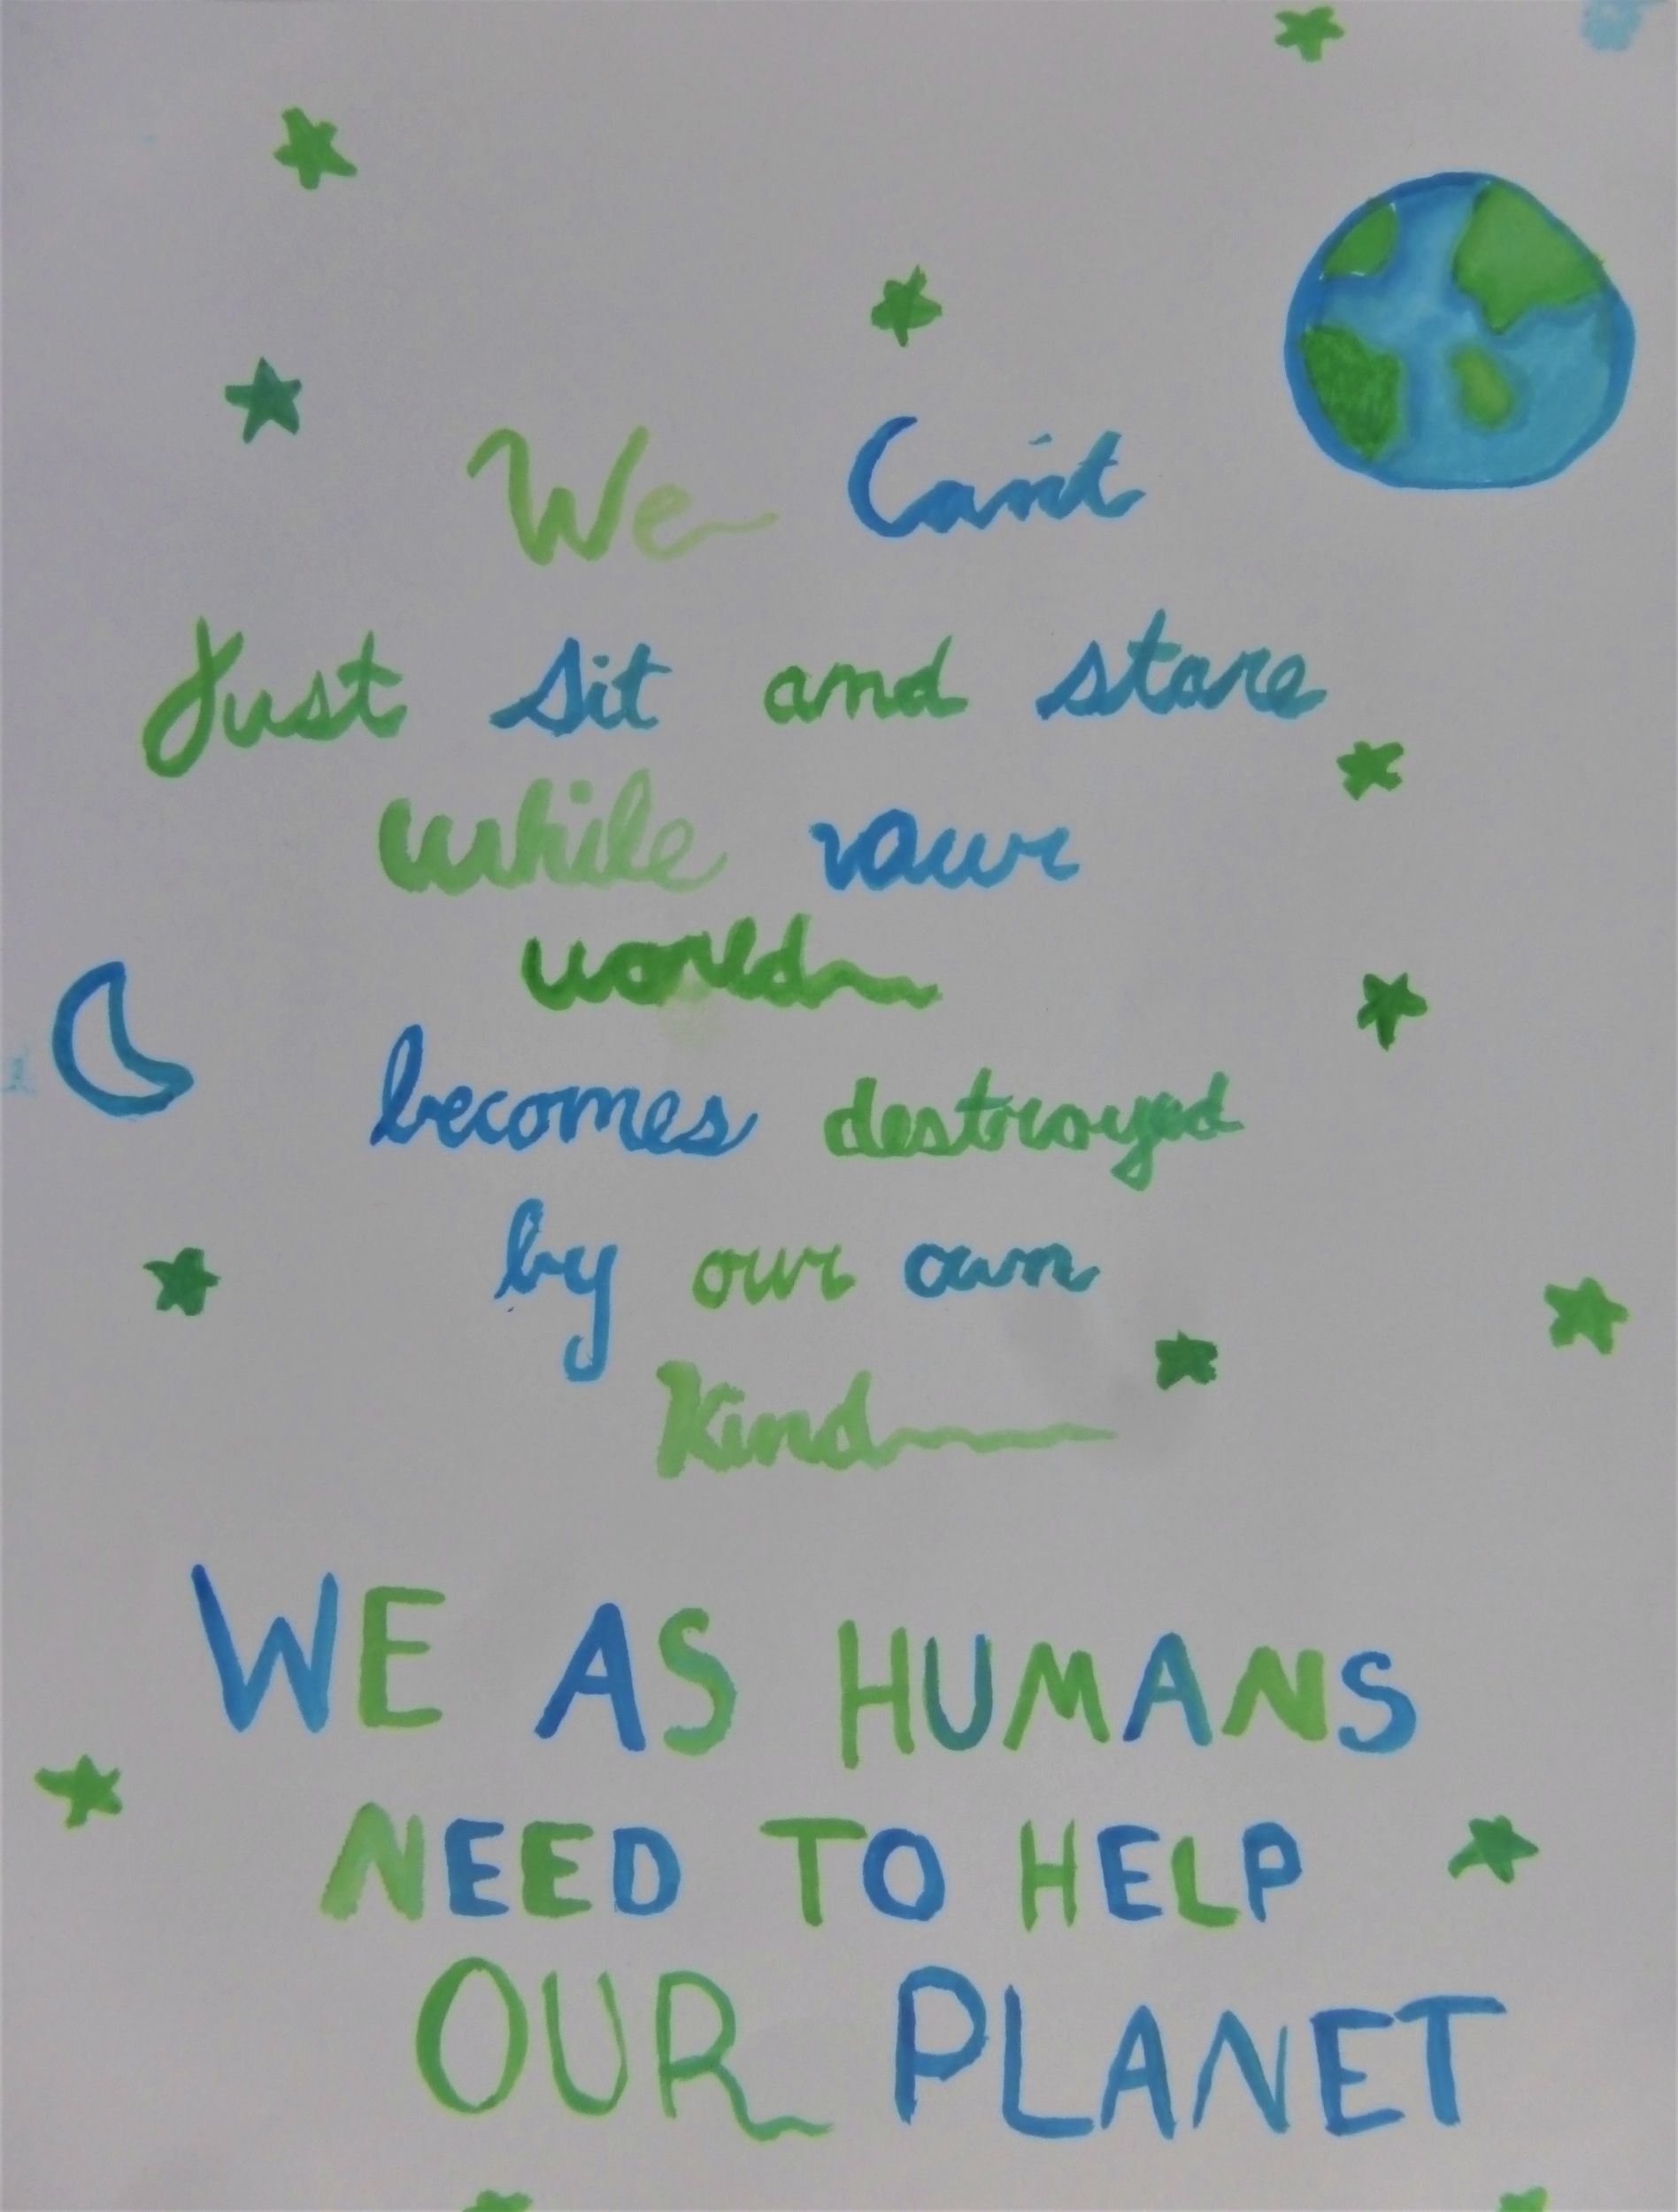 We Can't
Just sit and stare
while our
world
becomes destroyed
by our own
Kind
WE AS HUMANS
NEED TO HELP
OUR PLANET